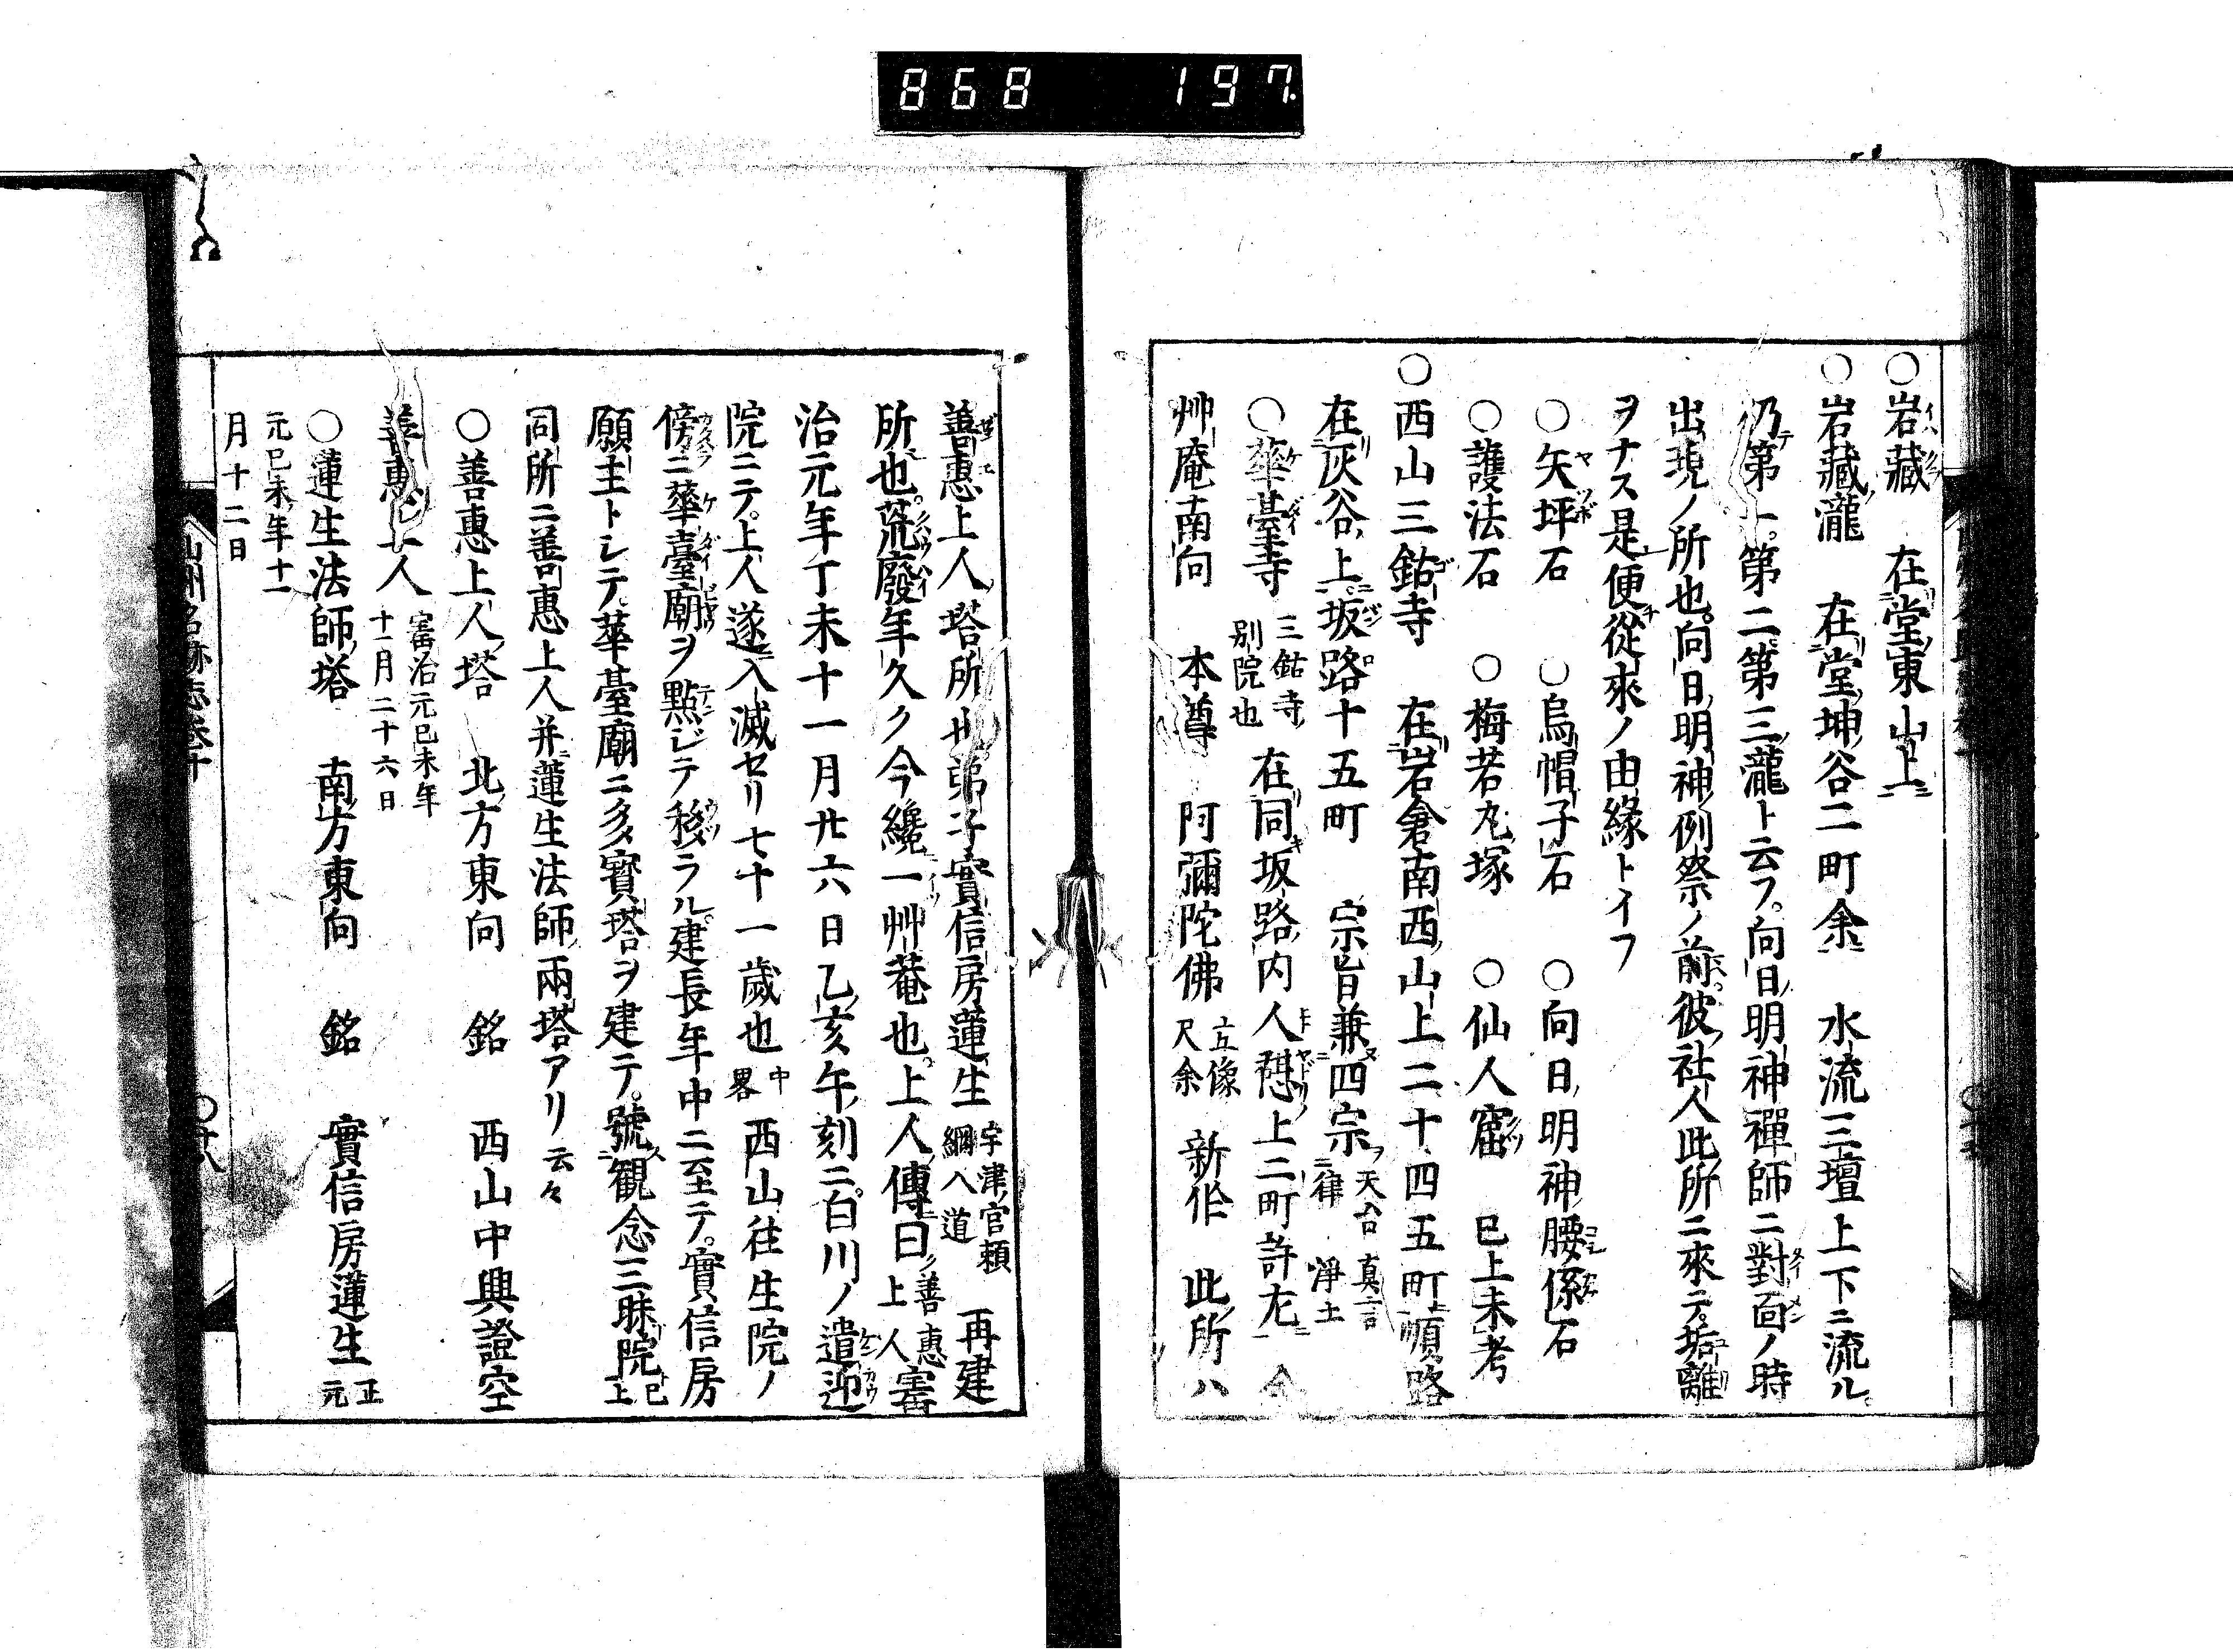 868 197
○岩藏 在堂東山上ニ
○岩藏瀧 在堂坤谷二町余ニ 水流三壇上下ニ流ル。
乃第一。第二。第三瀧ト云フ。向日明神禪師ニ對面ノ時
出現ノ所也。向日明神例祭ノ前。彼社人此所ニ來テ。垢離
ヲナス是便從來ノ由緣トイフ
○矢坪石 ○烏帽子石 ○向日明神腰係石
○護法石 ○梅若丸塚 ○仙人窟 已上未考
○西山三鈷寺 在岩倉南西山上二十四五町順路
在灰谷上ニ坂路十五町 宗旨兼四宗 天台 真言 律 淨土
○華臺寺 三鈷寺別院也 在同坂路内人憩上二町許左
艸庵南向 本尊 阿彌陀佛 立像尺余 新作 此所ハ
善惠上人塔所 弟子實信房蓮生 宇津宮頼綱入道 再建
所也。荒廢年久ク今纔一艸菴也。上人傳曰 善惠上人 寳
治元年丁未十一月廿六日乙亥午刻ニ。白川ノ遣迎
院ニテ。上人遂入滅セリ七十一歳也 中畧 西山往生院ノ
傍ニ華臺廟ヲ點ジテ移ラル。建長年中ニ至テ。實信房
願主トシテ。華臺廟ニ多寳塔ヲ建テ。號観念三昧院 已上
同所ニ善惠上人并ニ蓮生法師兩塔アリ云々
○善惠上人塔 北方東向 銘 西山中興證空
善惠上人 寳治元己未年十一月二十六日
○蓮生法師塔 南方東向 銘 實信房蓮生 正元
元己未年十一
月十二日
山州名跡志卷十 ○廿八